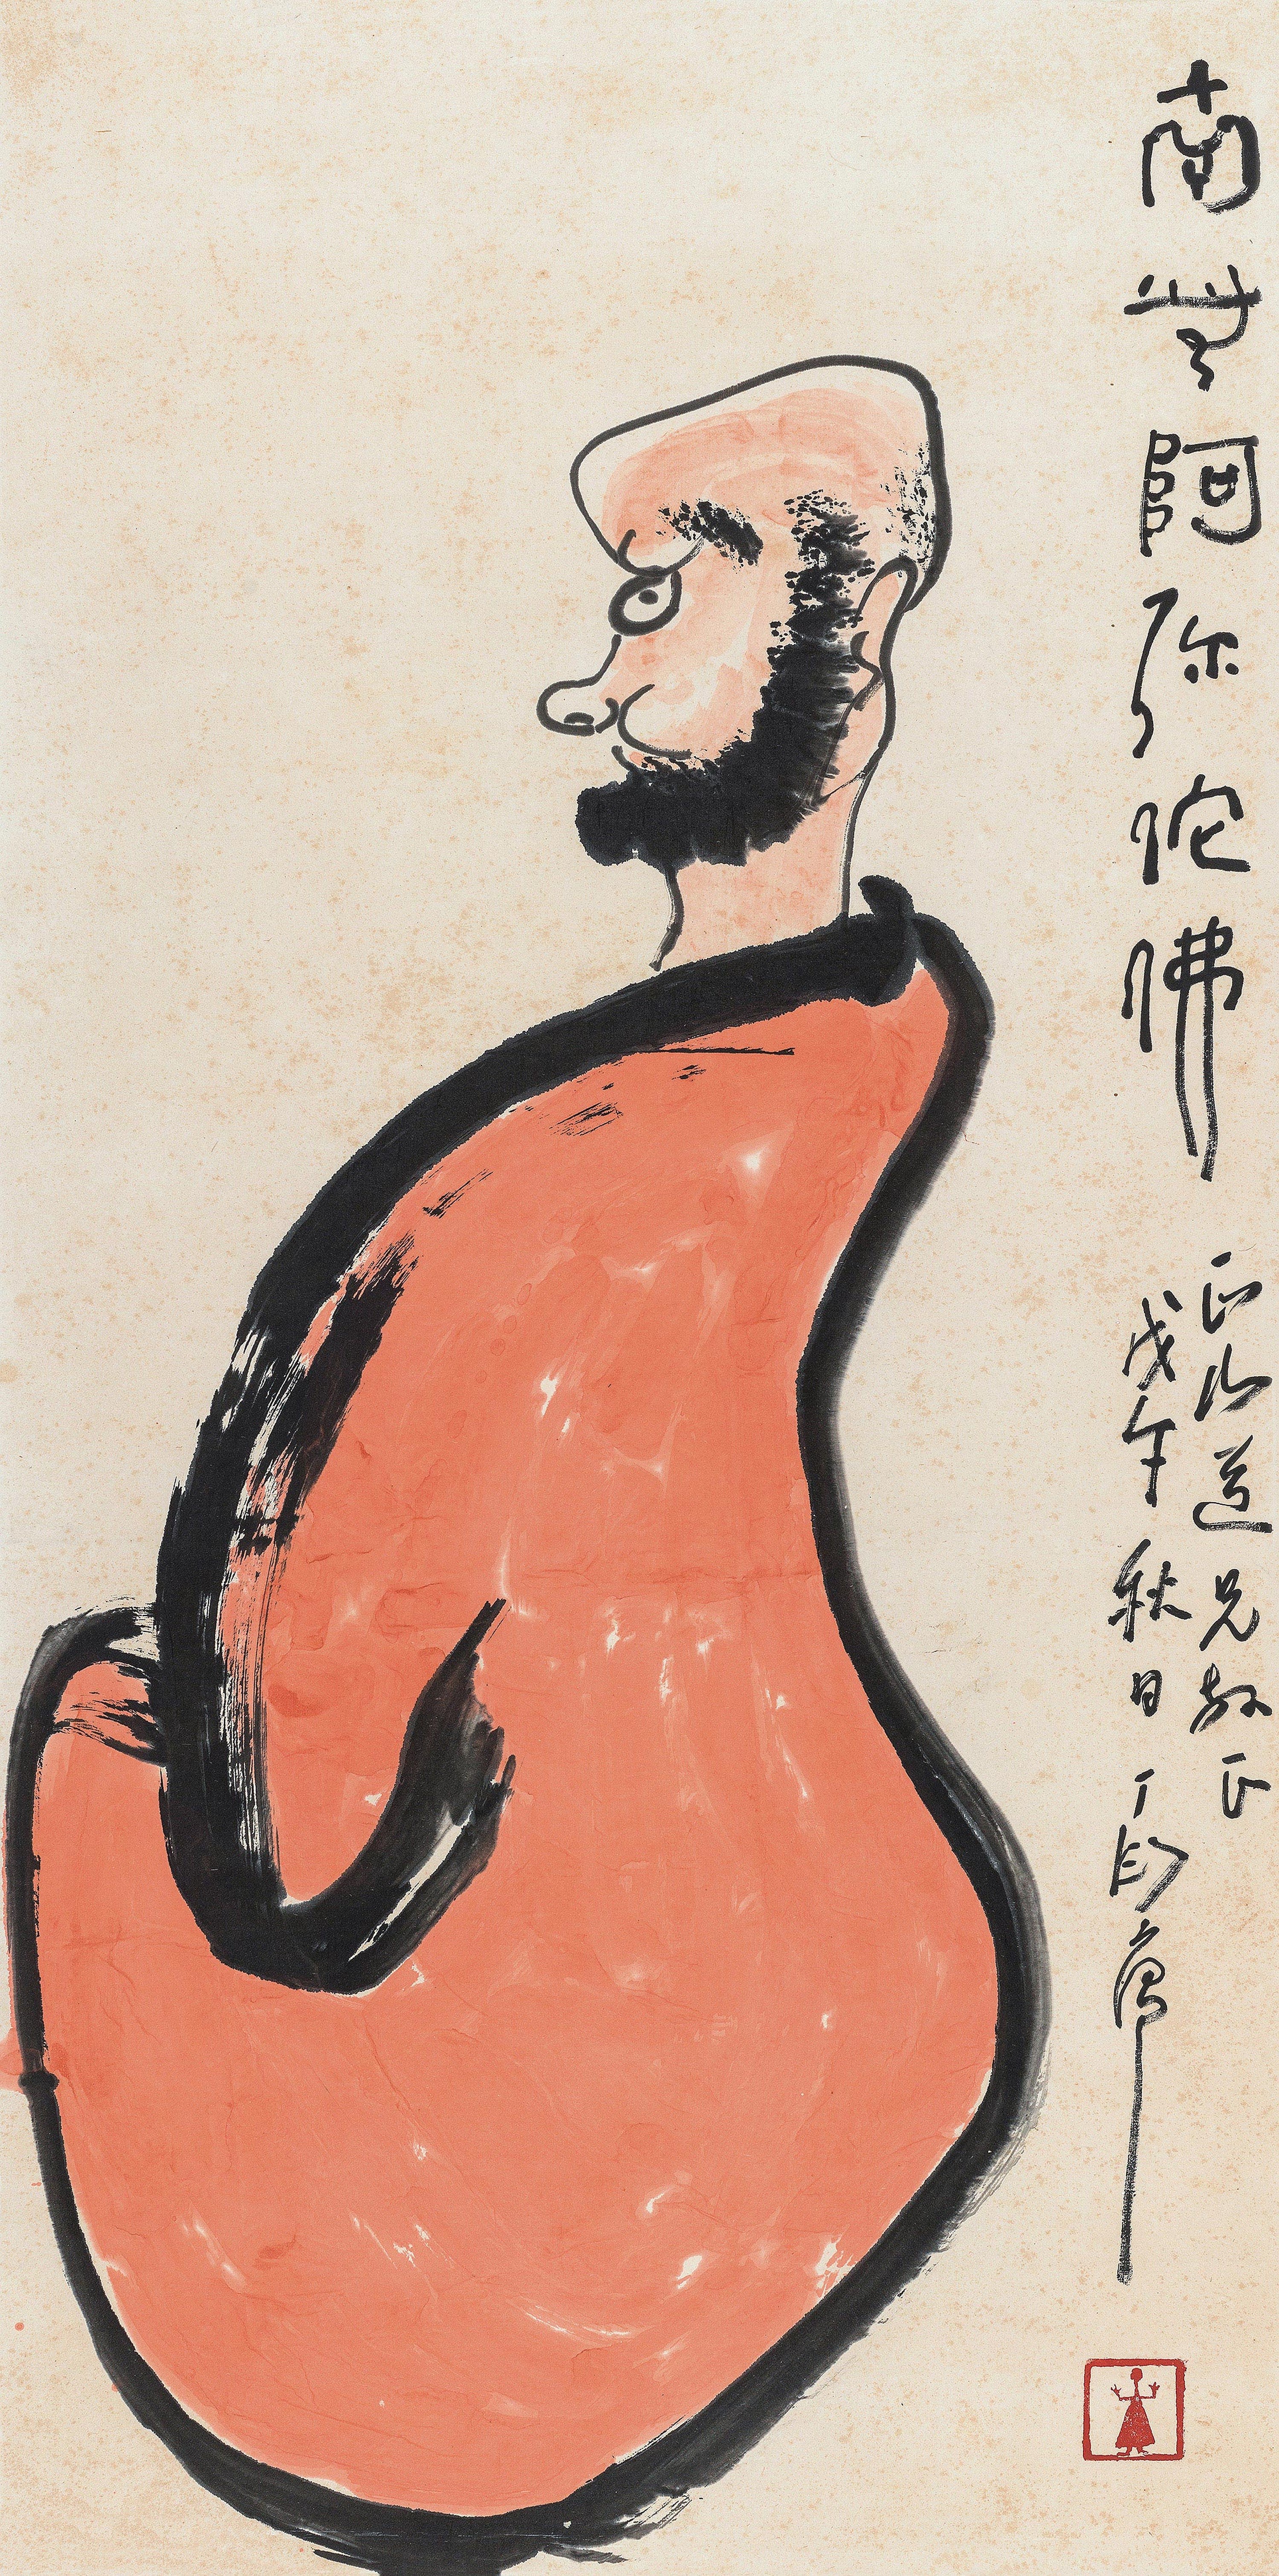 南無阿弥陀佛
正山道兄教正
戊午秋日 丁衍庸